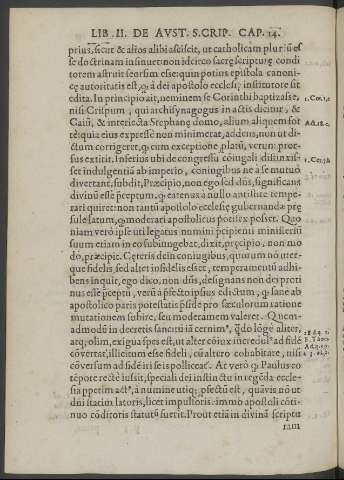 LIB. II. DE AVST. S. CRIP. CAP. 14.
prius, sicut & alios alibi asciscit, ut catholicam pluriū es
se doctrinam insinuet: non idcirco sacrę scripturę condi
torem astruit seorsim esse: quin potius epistola canoni-
cę autoritatis est, q̃ á dei apostolo ecclesię institutore sit
edita. In principio ait, neminem se Corinthi baptizasse,
nisi Crispum, qui archisynagogus in actis dicitur, &
Caiū, & interiecta Stephanę domo, alium aliquem for
te: quia eius expressè non meminerat, addens, non ut di-
ctum corrigeret, q̃ cum exceptione platū, verum: pror-
sus extitit. Inferius ubi de congressu cōiugali disiunxis-
set indulgentiā ab imperio, coniugibus ne à se mutuò
divertant, subdit, Præcipio, non ego sed dūs, significans
divinū esse p̄ceptum, q̃ eatenus a nullo antistite tempe-
rari quiret: non tantū apostolo ecclesię gubernandę prę
sule satum, q̃ moderari apostolicus potitex posset. Quo
niam verò ipse uti legatus numini pcipienti ministeriū
suum etiam in eo subiungebat, dixit, pręcipio, non mo
dò, præcipit. Cęteris deīn coniugibus, quorum nō uter-
que fidelis sed alter infidelis esset, temperamentū adhi-
bens inquit, ego dico, non dūs, designans non dei proti
nus esse p̄ceptū, verū apostolici
apostolico paris potestatis psidē pro sæculorum ratione
mutationem subire, seu moderamen valeret. Quem-
admodū in decretis sancitū iā cernimꝰ, q̃do lōgè aliter,
atq; olim, exigua spes est, ut alter cōiux incredulꝰ ad fidē
cōvertat, illicitum esse fideli, cū altero cohabitare, nisi
cōversum ad fidē iri se is polliceat'. At verò q̃ Paulus eo
tēpore rectè iussit, speciali dei instinctu in regēda eccle-
sia ppetim actꝰ, à numine utiq; p̄fectū est, quāvis nō ut
dni statim latoris, licet impulsoris: immo apostoli cōti-
nuo cōditoris statutū fuerit. Prout etiā in divinā scriptu
ram
1. Cor. 1. c
Act. 18. c.
1. Cor. 7. b